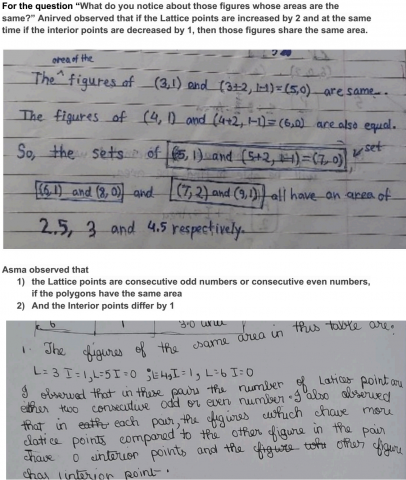 For the question “What do you notice about those figures whose areas are the
same?” Anirved observed that if the Lattice points are increased by 2 and at the same
time if the interior points are decreased by 1, then those figures share the same area.
area of the
The ^ figures of (3,1) and (3+2, 1-1)=(5,0) are same.
The figures of (4, 1) and (4+2, 1-1)=(6,0) are also equal.
So, the sets of (5, 1) and (5+2, 1-1)=(7,0) set
(6,1) and (8,0) and (7,2) and (9,1) all have an area of
2.5, 3 and 4.5 respectively.
Asma observed that
1) the Lattice points are consecutive odd numbers or consecutive even numbers,
if the polygons have the same area
2) And the Interior points differ by 1
1. The figures of the same area in this table are.
L=3 I=1, L=5 I=0 ; L=4, I=1, L=6 I=0
I observed that in these pairs the number of Latice point are
either two consecutive odd or even number. I also observed
that in each pair, the figures which have more
latice points compared to the other figure in the pair
have 0 interior points and the other figure
has 1 interior point.